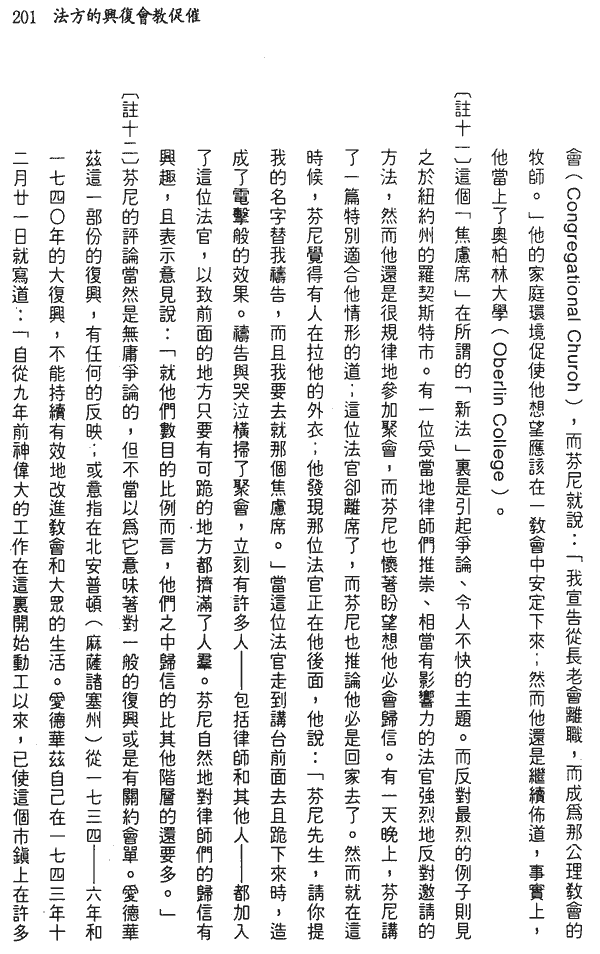 201 法方的興復會教促催
會（Congregational Churoh），而芬尼就說：「我宣告從長老會離職，而成爲那公理敎會的
牧師。」他的家庭環境促使他想望應該在一敎會中安定下來；然而他還是繼續佈道，事實上，
他當上了奧柏林大學（Oberlin College）。
〔註十一〕這個「焦慮席」在所謂的「新法」裏是引起爭論、令人不快的主題。而反對最烈的例子則見
之於紐約州的羅契斯特市。有一位受當地律師們推崇、相當有影響力的法官強烈地反對邀請的
方法，然而他還是很規律地參加聚會，而芬尼也懷著盼望想他必會歸信。有一天晚上，芬尼講
了一篇特別適合他情形的道；這位法官卻離席了，而芬尼也推論他必是回家去了。然而就在這
時候，芬尼覺得有人在拉他的外衣；他發現那位法官正在他後面，他說：「芬尼先生，請你提
我的名字替我禱告，而且我要去就那個焦慮席。」當這位法官走到講台前面去且跪下來時，造
成了電擊般的效果。禱告與哭泣橫掃了聚會，立刻有許多人——包括律師和其他人——都加入
了這位法官，以致前面的地方只要有可跪的地方都擠滿了人羣。芬尼自然地對律師們的歸信有
興趣，且表示意見說：「就他們數目的比例而言，他們之中歸信的比其他階層的還要多。」
〔註十二〕芬尼的評論當然是無庸爭論的，但不當以爲它意味著對一般的復興或是有關約會單。愛德華
茲這一部份的復興，有任何的反映；或意指在北安普頓（麻薩諸塞州）從一七三四——六年和
一七四〇年的大復興，不能持續有效地改進敎會和大眾的生活。愛德華茲自己在一七四三年十
二月廿一日就寫道：「自從九年前神偉大的工作在這裏開始動工以來，已使這個市鎭上在許多